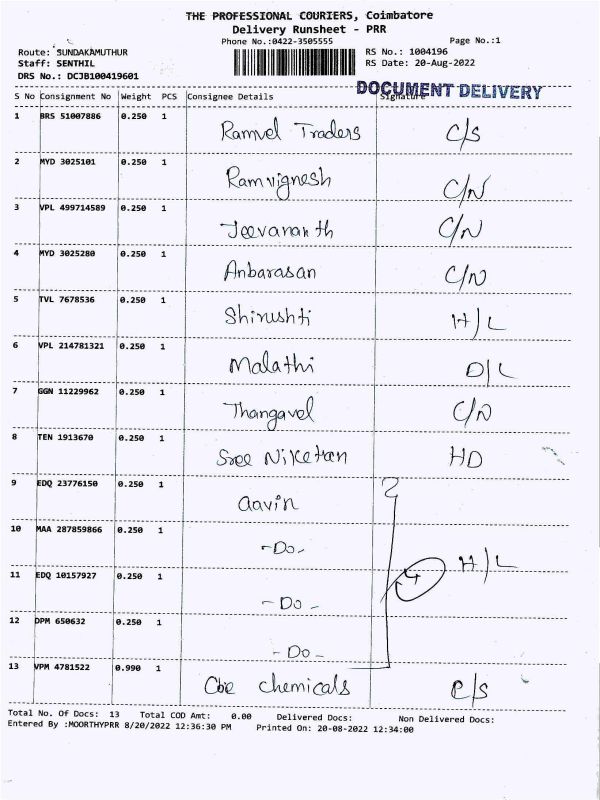 THE PROFESSIONAL COURIERS, Coimbatore
Delivery Runsheet - PRR
Phone No.:0422-3505555
Page No.:1
Route: SUNDAKAMUTHUR
RS No.: 1004196
Staff: SENTHIL
RS Date: 20-Aug-2022
DRS No.: DCJB100419601
DOCUMENT DELIVERY
S No Consignment No Weight PCS Consignee Details Signature
1 BRS 51007886 0.250 1 Ramvel Traders C/S
2 MYD 3025101 0.250 1 Ramvignesh C/N
3 VPL 499714589 0.250 1 Jeevananth C/N
4 MYD 3025280 0.250 1 Anbarasan C/N
5 TVL 7678536 0.250 1 Shirushti H/L
6 VPL 214781321 0.250 1 Malathi D/L
7 GGN 11229962 0.250 1 Thangavel C/N
8 TEN 1913670 0.250 1 Sree Niketan HD
9 EDQ 23776150 0.250 1 aavin
10 MAA 287859866 0.250 1 -Do-
4 H/L
11 EDQ 10157927 0.250 1 -Do-
12 DPM 650632 0.250 1 -Do-
13 VPM 4781522 0.990 1 Cbe chemicals C/S
Total No. Of Docs: 13 Total COD Amt: 0.00 Delivered Docs: Non Delivered Docs:
Entered By :MOORTHYPRR 8/20/2022 12:36:30 PM Printed On: 20-08-2022 12:34:00